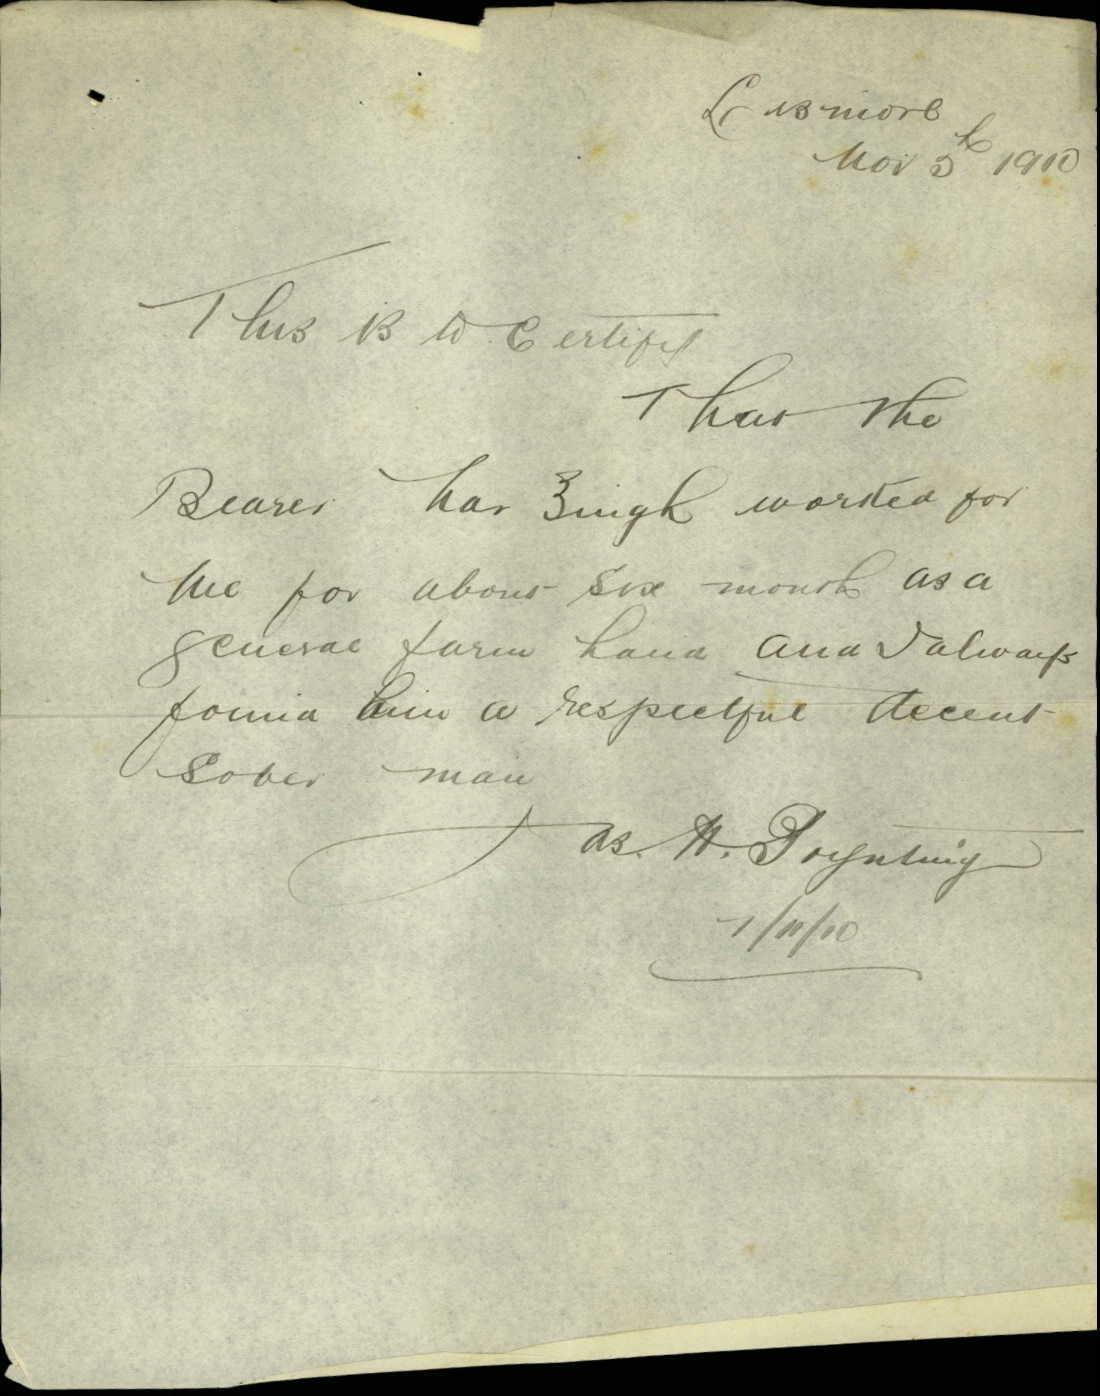 Lismore
Nov 5th 1910
This is to Certify
That the
Bearer har Singh worked for
me for about six month as a
general farm hand and I always
found him a respectful decent
Sober man
Jas. H. Poynting
7/11/10